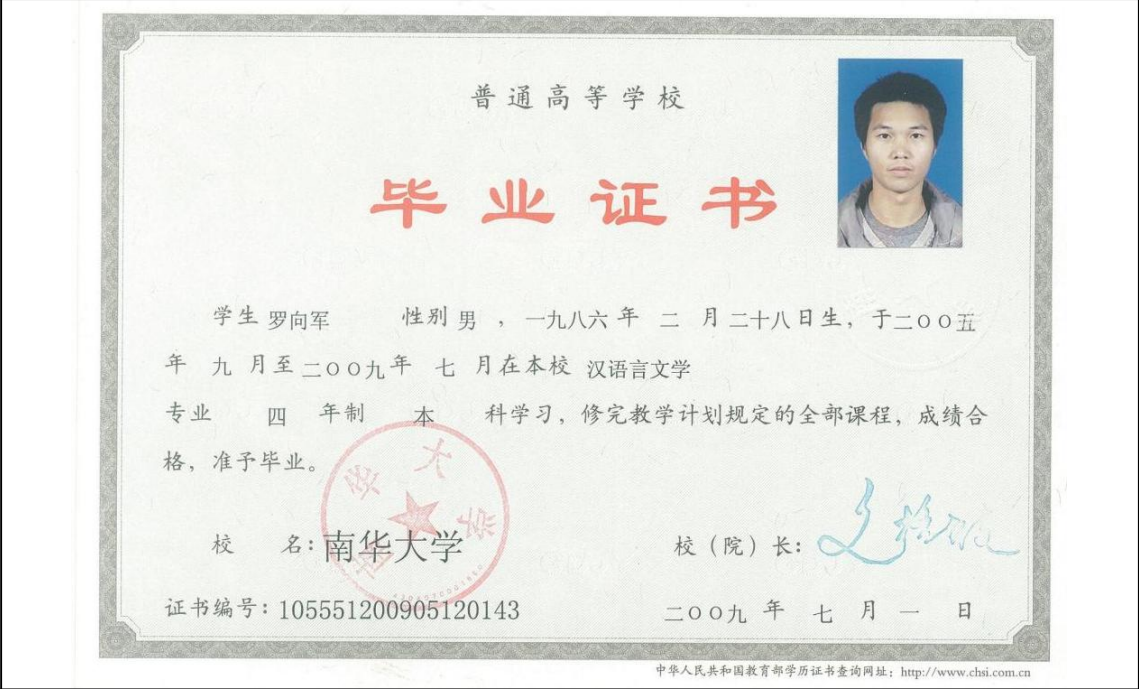 普通高等学校
毕业证书
学生 罗向军 性别 男 ，一九八六 年 二 月 二十八日生，于二OO五
年 九 月至 二OO九年 七 月在本校 汉语言文学
专业 四 年制 本 科学习，修完教学计划规定的全部课程，成绩合
格，准予毕业。
南华大学
校 名：南华大学
校（院）长：
证书编号：105551200905120143
二OO九 年 七 月 一 日
中华人民共和国教育部学历证书查询网址：http://www.chsi.com.cn